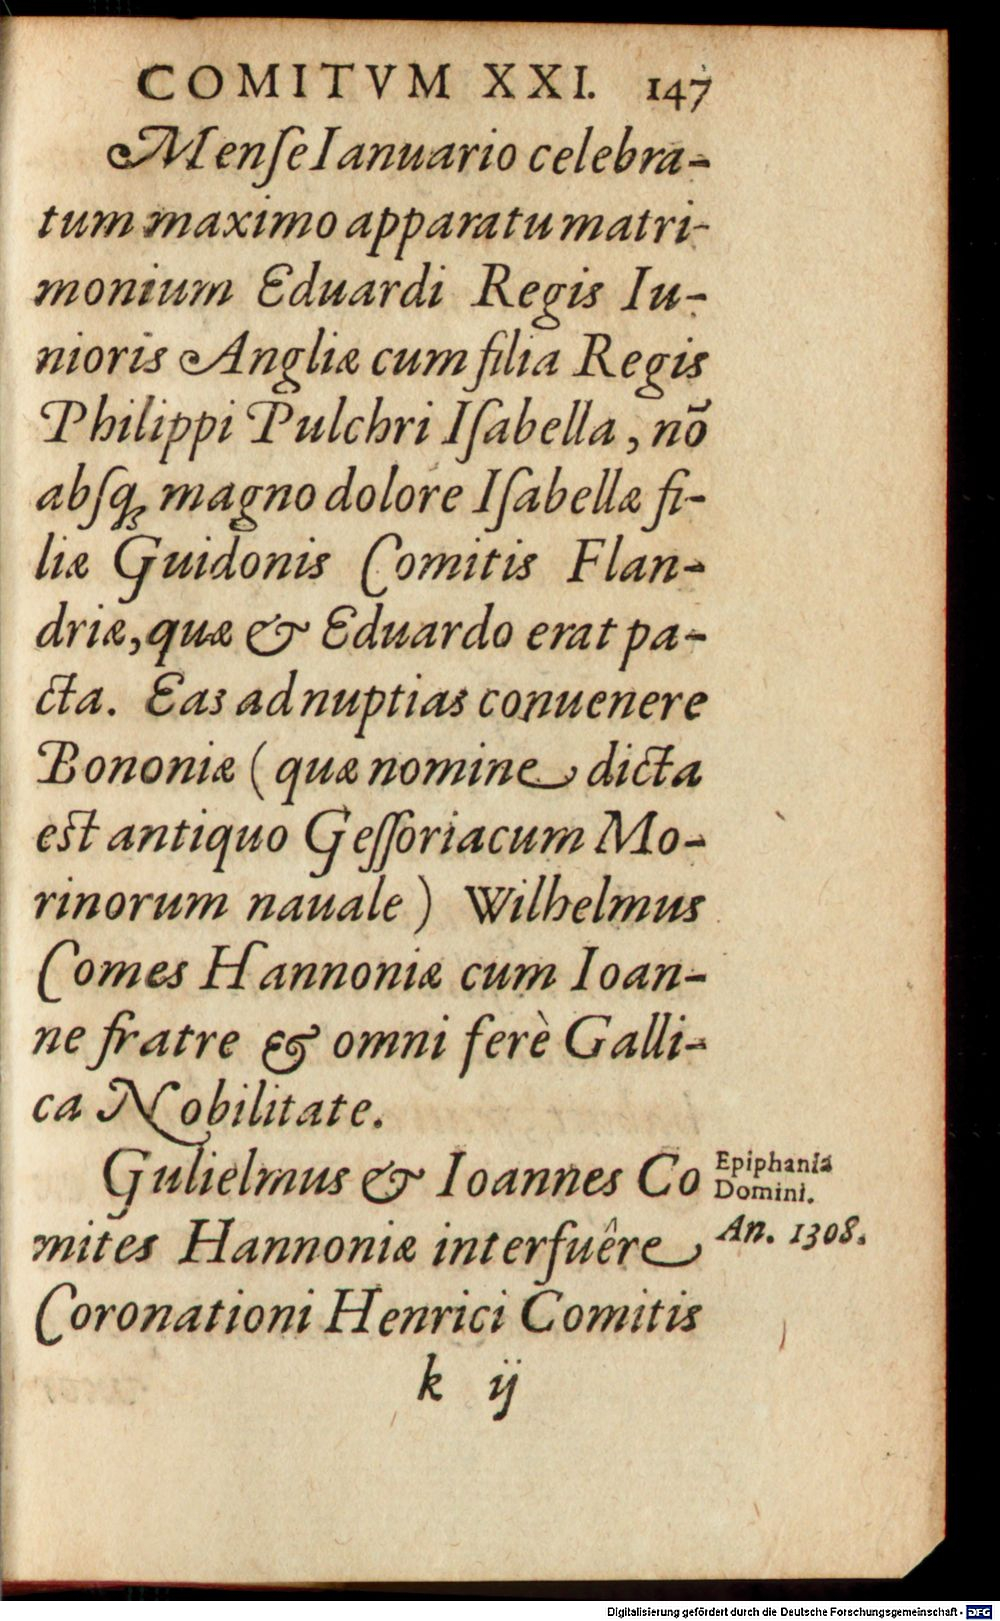 COMITVM XXI. 147
Menſe Ianuario celebra-
tum maximo apparatu matri-
monium Eduardi Regis Iu-
nioris Angliæ cum filia Regis
Philippi Pulchri Iſabella, nõ
abſq; magno dolore Iſabellæ fi-
liæ Guidonis Comitis Flan-
driæ, quæ & Eduardo erat pa-
cta. Eas ad nuptias conuenere
Bononiæ (quæ nomine dicta
est antiquo Geſſoriacum Mo-
rinorum nauale) Wilhelmus
Comes Hannoniæ cum Ioan-
ne fratre & omni ferè Galli-
ca Nobilitate.
Gulielmus & Ioannes Co
mites Hannoniæ interfuêre
Coronationi Henrici Comitis
Epiphania
Domini.
An. 1308.
k ij
Digitalisierung gefördert durch die Deutsche Forschungsgemeinschaft - DFG